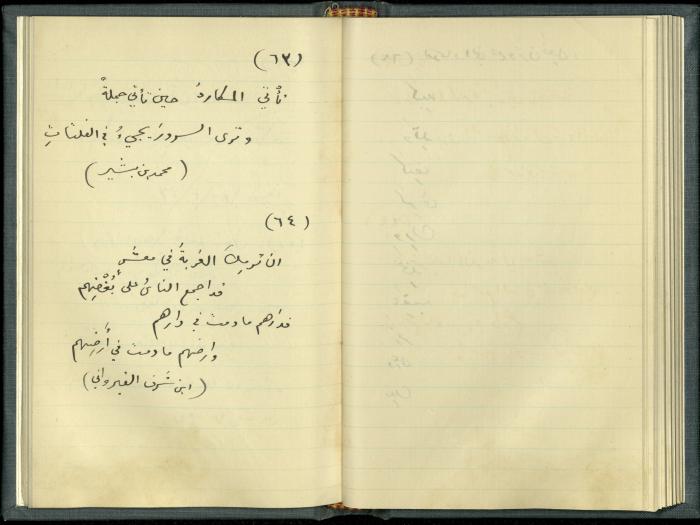 (٦٣)
تأتي المكارهُ حين تأتي جملةً
وترى السرورَ يجيءُ في الفلتاتِ
(محمد بن بشير)
(٦٤)
ان ترمِكَ الغربةُ في معشرٍ
قد اجمع الناسُ على بُغْضِهِم
فدارهم ما دمت في دارهم
وارضهم ما دمت في أَرضِهم
(ابن شَرَف القيرواني)